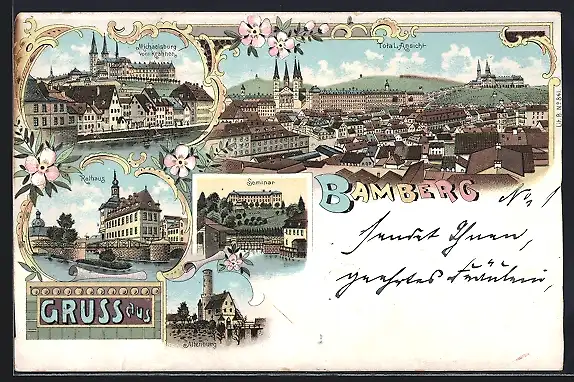 Michaelsburg
vom Krahnen
Total-Ansicht
Rathaus
Seminar
BAMBERG
No 1
sendet Ihnen,
geehrtes Fräulein,
GRUSS aus
Altenburg